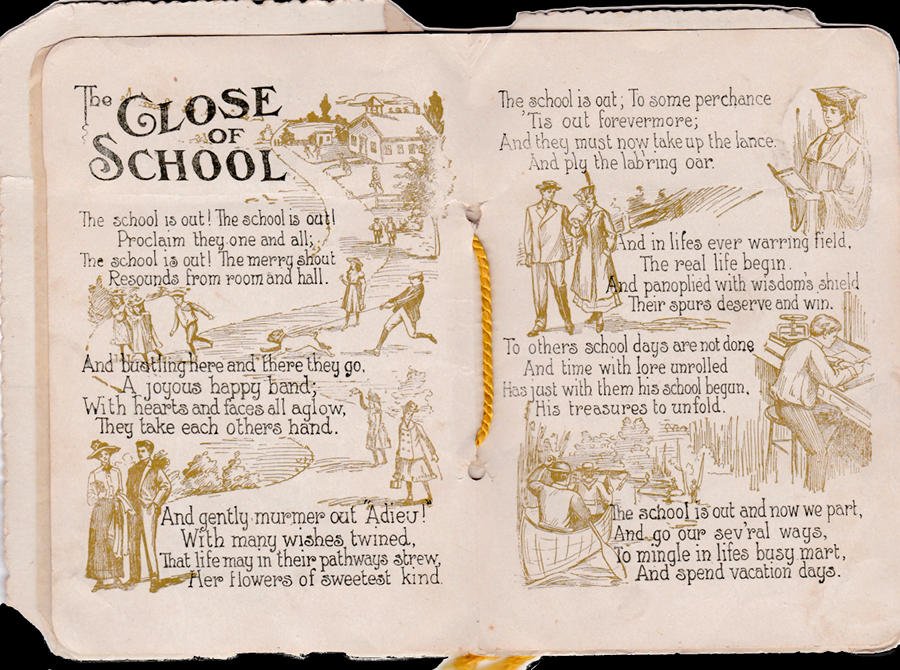 The CLOSE
OF
SCHOOL
The school is out! The school is out!
Proclaim they one and all;
The school is out! The merry shout
Resounds from room and hall.
And bustling here and there they go,
A joyous happy band;
With hearts and faces all aglow,
They take each others hand.
And gently murmer out "Adieu!"
With many wishes twined,
That life may in their pathways strew,
Her flowers of sweetest kind.
The school is out; To some perchance
'Tis out forevermore;
And they must now take up the lance.
And ply the lab'ring oar.
And in lifes ever warring field,
The real life begin.
And panoplied with wisdom's shield
Their spurs deserve and win.
To others school days are not done
And time with lore unrolled
Has just with them his school begun,
His treasures to unfold.
The school is out and now we part,
And go our sev'ral ways,
To mingle in lifes busy mart,
And spend vacation days.